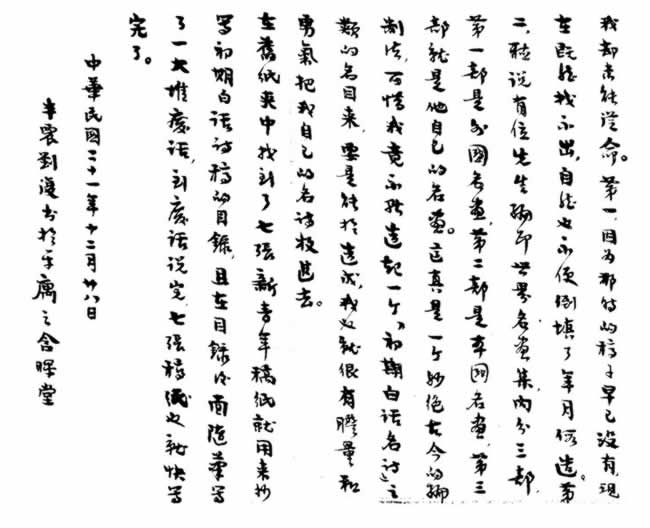 我却未能从命。第一，因为那时的稿子早已没有，现
在既然找不出，自然也不便倒填了年月假造。第
二，听说有位先生编印世界名画集，内分三部，
第一部是外国名画，第二部是本国名画，第三
部就是他自己的名画。这真是一个妙绝古今的编
制法，可惜我竟不能造起一个“初期白话名诗”之
类的名目来，要是能于造成，我也就很有胆量和
勇氣把我自己的名诗放进去。
在舊纸夹中找到了七張新青年稿纸，就用来抄
写初期白话诗稿的目錄，且在目錄后面随筆写
了一大堆废话，到废话说完，七張稿纸也就快写
完了。
中華民國二十一年十二月廿八日
半農劉復書於平寓之含暉堂